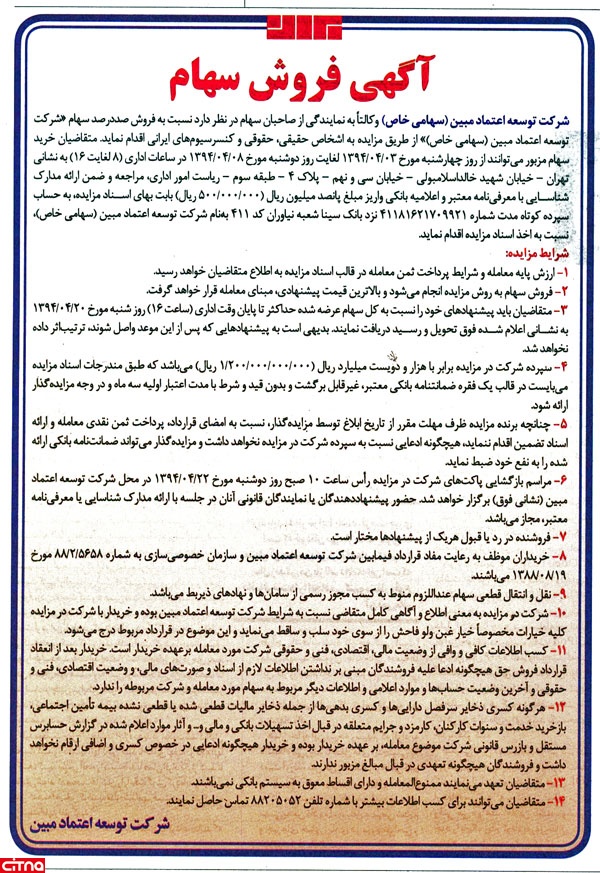 آگهی فروش سهام
شرکت توسعه اعتماد مبین (سهامی خاص) وکالتاً به نمایندگی از صاحبان سهام در نظر دارد نسبت به فروش صددرصد سهام «شرکت
توسعه اعتماد مبین (سهامی خاص)» از طریق مزایده به اشخاص حقیقی، حقوقی و کنسرسیوم‌های ایرانی اقدام نماید. متقاضیان خرید
سهام مزبور می‌توانند از روز چهارشنبه مورخ ۱۳۹۴/۰۴/۰۳ لغایت روز دوشنبه مورخ ۱۳۹۴/۰۴/۰۸ در ساعات اداری (۸ لغایت ۱۶) به نشانی
تهران – خیابان شهید خالداسلامبولی – خیابان سی و نهم – پلاک ۴ – طبقه سوم – ریاست امور اداری، مراجعه و ضمن ارائه مدارک
شناسایی با معرفی‌نامه معتبر و اعلامیه بانکی واریز مبلغ پانصد میلیون ریال (۵۰۰/۰۰۰/۰۰۰ ریال) بابت بهای اسناد مزایده، به حساب
سپرده کوتاه مدت شماره ۴۱۱۸۱۶۲۱۷۰۹۹۲۱ نزد بانک سینا شعبه نیاوران کد ۴۱۱ به‌نام شرکت توسعه اعتماد مبین (سهامی خاص)،
نسبت به اخذ اسناد مزایده اقدام نماید.
شرایط مزایده:
۱- ارزش پایه معامله و شرایط پرداخت ثمن معامله در قالب اسناد مزایده به اطلاع متقاضیان خواهد رسید.
۲- فروش سهام به روش مزایده انجام می‌شود و بالاترین قیمت پیشنهادی، مبنای معامله قرار خواهد گرفت.
۳- متقاضیان باید پیشنهادهای خود را نسبت به کل سهام عرضه شده حداکثر تا پایان وقت اداری (ساعت ۱۶) روز شنبه مورخ ۱۳۹۴/۰۴/۲۰
به نشانی اعلام شده فوق تحویل و رسید دریافت نمایند. بدیهی است به پیشنهادهایی که پس از این موعد واصل شوند، ترتیب‌اثر داده
نخواهد شد.
۴- سپرده شرکت در مزایده برابر با هزار و دویست میلیارد ریال (۱/۲۰۰/۰۰۰/۰۰۰/۰۰۰ ریال) می‌باشد که طبق مندرجات اسناد مزایده
می‌بایست در قالب یک فقره ضمانتنامه بانکی معتبر، غیرقابل برگشت و بدون قید و شرط با مدت اعتبار اولیه سه ماه و در وجه مزایده‌گذار
ارائه شود.
۵- چنانچه برنده مزایده ظرف مهلت مقرر از تاریخ ابلاغ توسط مزایده‌گذار، نسبت به امضای قرارداد، پرداخت ثمن نقدی معامله و ارائه
اسناد تضمین اقدام ننماید، هیچگونه ادعایی نسبت به سپرده شرکت در مزایده نخواهد داشت و مزایده‌گذار می‌تواند ضمانت‌نامه بانکی ارائه
شده را به نفع خود ضبط نماید.
۶- مراسم بازگشایی پاکت‌های شرکت در مزایده رأس ساعت ۱۰ صبح روز دوشنبه مورخ ۱۳۹۴/۰۴/۲۲ در محل شرکت توسعه اعتماد
مبین (نشانی فوق) برگزار خواهد شد. حضور پیشنهاددهندگان یا نمایندگان قانونی آنان در جلسه با ارائه مدارک شناسایی یا معرفی‌نامه
معتبر، مجاز می‌باشد.
۷- فروشنده در رد یا قبول هریک از پیشنهادها مختار است.
۸- خریداران موظف به رعایت مفاد قرارداد فیمابین شرکت توسعه اعتماد مبین و سازمان خصوصی‌سازی به شماره ۸۸/۲/۵۶۵۸ مورخ
۱۳۸۸/۰۸/۱۹ می‌باشند.
۹- نقل و انتقال قطعی سهام عنداللزوم منوط به کسب مجوز رسمی از سامان‌ها و نهادهای ذیربط می‌باشد.
۱۰- شرکت در مزایده به معنی اطلاع و آگاهی کامل متقاضی نسبت به شرایط شرکت توسعه اعتماد مبین بوده و خریدار با شرکت در مزایده
کلیه خیارات مخصوصاً خیار غبن ولو فاحش را از سوی خود سلب و ساقط می‌نماید و این موضوع در قرارداد مربوط درج می‌شود.
۱۱- کسب اطلاعات کافی و وافی از وضعیت مالی، اقتصادی، فنی و حقوقی شرکت مورد معامله برعهده خریدار است. خریدار بعد از انعقاد
قرارداد فروش حق هیچگونه ادعا علیه فروشندگان مبنی بر نداشتن اطلاعات لازم از اسناد و صورت‌های مالی، و وضعیت اقتصادی، فنی و
حقوقی و آخرین وضعیت حساب‌ها و موارد اعلامی و اطلاعات دیگر مربوط به سهام مورد معامله و شرکت مربوطه را ندارد.
۱۲- هرگونه کسری ذخایر سرفصل دارایی‌ها و کسری بدهی‌ها از جمله ذخایر مالیات قطعی شده یا قطعی نشده بیمه تأمین اجتماعی،
بازخرید خدمت و سنوات کارکنان، کارمزد و جرایم متعلقه در قبال اخذ تسهیلات بانکی و مالی و... و آثار موارد اعلام شده در گزارش حسابرس
مستقل و بازرس قانونی شرکت موضوع معامله، بر عهده خریدار بوده و خریدار هیچگونه ادعایی در خصوص کسری و اضافی ارقام نخواهد
داشت و فروشندگان هیچگونه تعهدی در قبال مبالغ مزبور ندارند.
۱۳- متقاضیان تعهد می‌نمایند ممنوع‌المعامله و دارای اقساط معوق به سیستم بانکی نمی‌باشند.
۱۴- متقاضیان می‌توانند برای کسب اطلاعات بیشتر با شماره تلفن ۸۸۲۰۵۰۵۲ تماس حاصل نمایند.
شرکت توسعه اعتماد مبین
CITNA